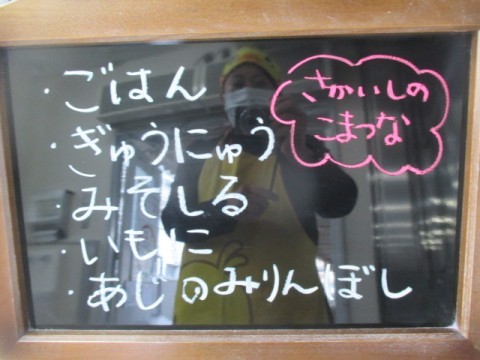 ・ごはん
・ぎゅうにゅう
・みそしる
・いもに
・あじのみりんぼし
さかいしの
こまつな